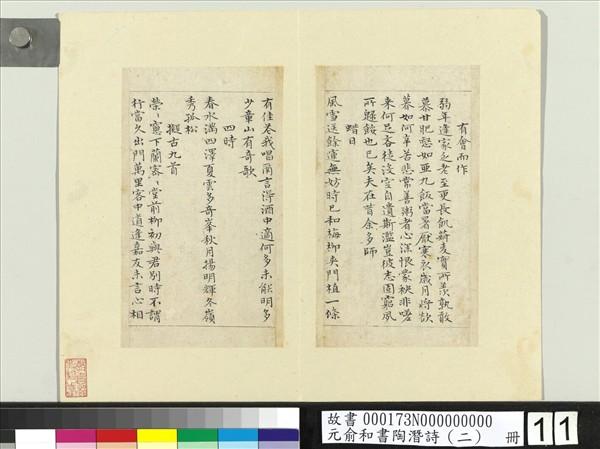 有會而作
弱年逢家乏老至更長飢菽麦實所羡孰敢
慕甘肥惄如亞九飯當暑厭寒衣歲月將欲
暮如何辛苦悲常善粥者心深恨蒙袂非嗟
来何足吝徒没空自遺斯濫豈彼志固窮夙
所歸餒也已矣夫在昔余多師
蜡日
風雪送餘運無妨時已和梅柳夾門植一條
有佳花我唱尔言得酒中適何多未能明多
少章山有奇歌
四時
春水満四澤夏雲多奇峯秋月揚明輝冬嶺
秀孤松
擬古九首
榮〻窓下蘭密〻堂前柳初與君別時不謂
行當久出門萬里客中道逢嘉友未言心相
故書 000173N000000000
元俞和書陶潛詩（二） 冊
11